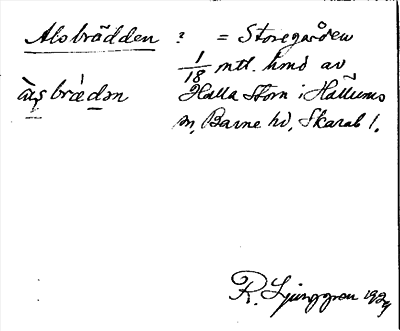 Alsbrädden ? = Storegården
1/18 mtl. hmd av
àsbrèdən Halla Storn i Hällums
sn, Barne hd, Skarab l.
R. Ljunggren 1929